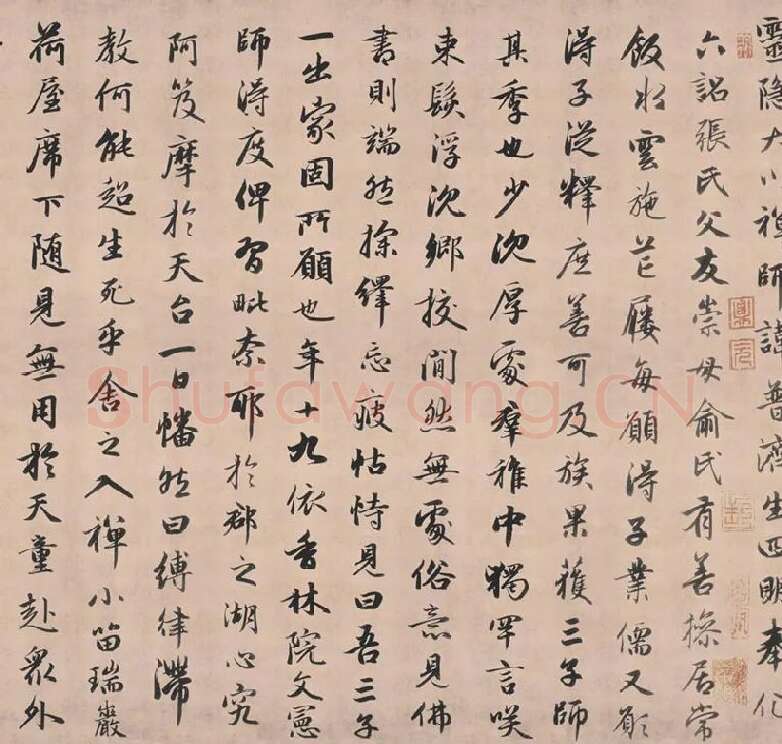 靈隐大川禅師諱普濟生四明奉化
六詔張氏父友崇母俞氏有善操居常
飯水雲施芒屨每願得子業儒又願
得子從釋庶善可及族果獲三子師
其季也少沈厚處羣稚中獨罕言咲
束髮浮沈鄉校閒然無處俗意見佛
書則端然探繹忘疲怙恃見曰吾三子
一出家固所願也年十九依香林院文憲
師得度俾習毗奈耶於郡之湖心究
阿笈摩於天台一日幡然曰縛律滯
教何能超生死乎舍之入禅小笛瑞巖
荷屋席下随見無用於天童赴眾外
Shufawang.CN